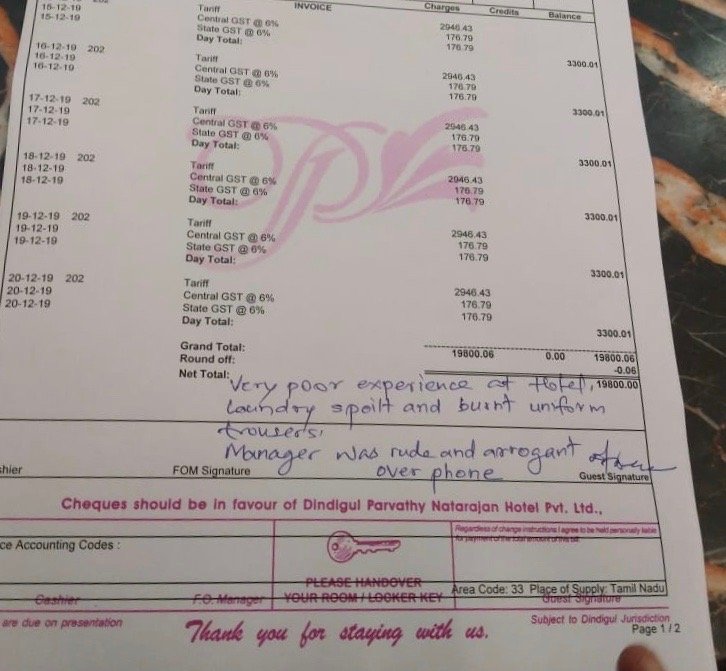 INVOICE Charges Credits Balance
15-12-19 Tariff
15-12-19 Central GST @ 6% 2946.43
State GST @ 6% 176.79
Day Total: 176.79
3300.01
16-12-19 202 Tariff
16-12-19 Central GST @ 6% 2946.43
16-12-19 State GST @ 6% 176.79
Day Total: 176.79
3300.01
17-12-19 202 Tariff
17-12-19 Central GST @ 6% 2946.43
17-12-19 State GST @ 6% 176.79
Day Total: 176.79
3300.01
18-12-19 202 Tariff
18-12-19 Central GST @ 6% 2946.43
18-12-19 State GST @ 6% 176.79
Day Total: 176.79
3300.01
19-12-19 202 Tariff
19-12-19 Central GST @ 6% 2946.43
19-12-19 State GST @ 6% 176.79
Day Total: 176.79
3300.01
20-12-19 202 Tariff
20-12-19 Central GST @ 6% 2946.43
20-12-19 State GST @ 6% 176.79
Day Total: 176.79
3300.01
Grand Total: 19800.06 0.00 19800.06
Round off: -0.06
Net Total: 19800.00
Very poor experience at Hotel,
laundry spoilt and burnt uniform
trousers.
Manager was rude and arrogant
over phone
shier FOM Signature Guest Signature
Cheques should be in favour of Dindigul Parvathy Natarajan Hotel Pvt. Ltd.,
Regardless of charge instructions I agree to be held personally liable
for payment of the total amount of this bill
ce Accounting Codes :
PLEASE HANDOVER
YOUR ROOM / LOCKER KEY
Area Code: 33 Place of Supply: Tamil Nadu
Cashier F.O. Manager Guest Signature
are due on presentation
Thank you for staying with us.
Subject to Dindigul Jurisdiction
Page 1 / 2